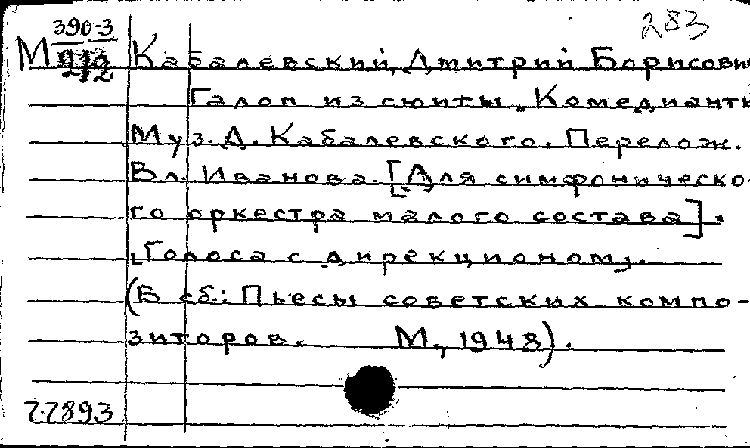 390-3
283
М 212 Кабалевский, Дмитрий Борисови
Галоп из сюиты „Комедианты
Муз. Д. Кабалевского. Перелож.
Вл. Иванова. [Для симфоническо-
го оркестра малого состава].
[Голоса с дирекционом].
(В сб.: Пьесы советских компо-
зиторов. М., 1948).
77893